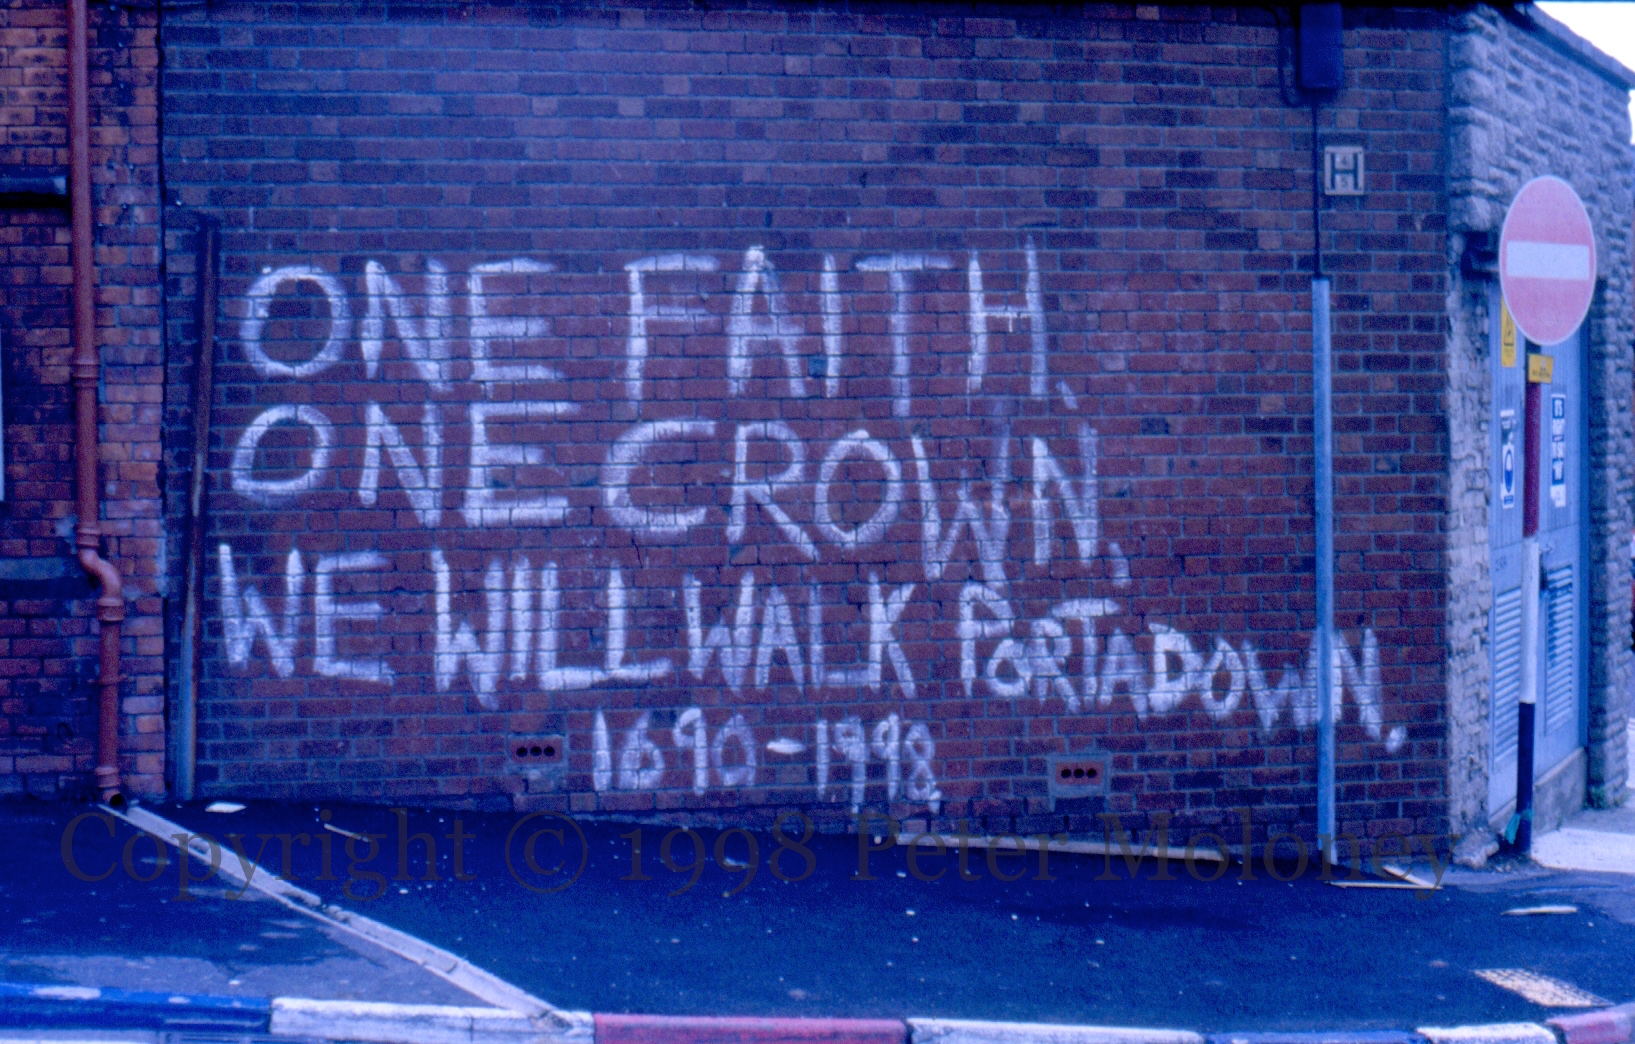 ONE FAITH,
ONE CROWN,
WE WILL WALK PORTADOWN.
1690-1998
H
Copyright © 1998 Peter Moloney